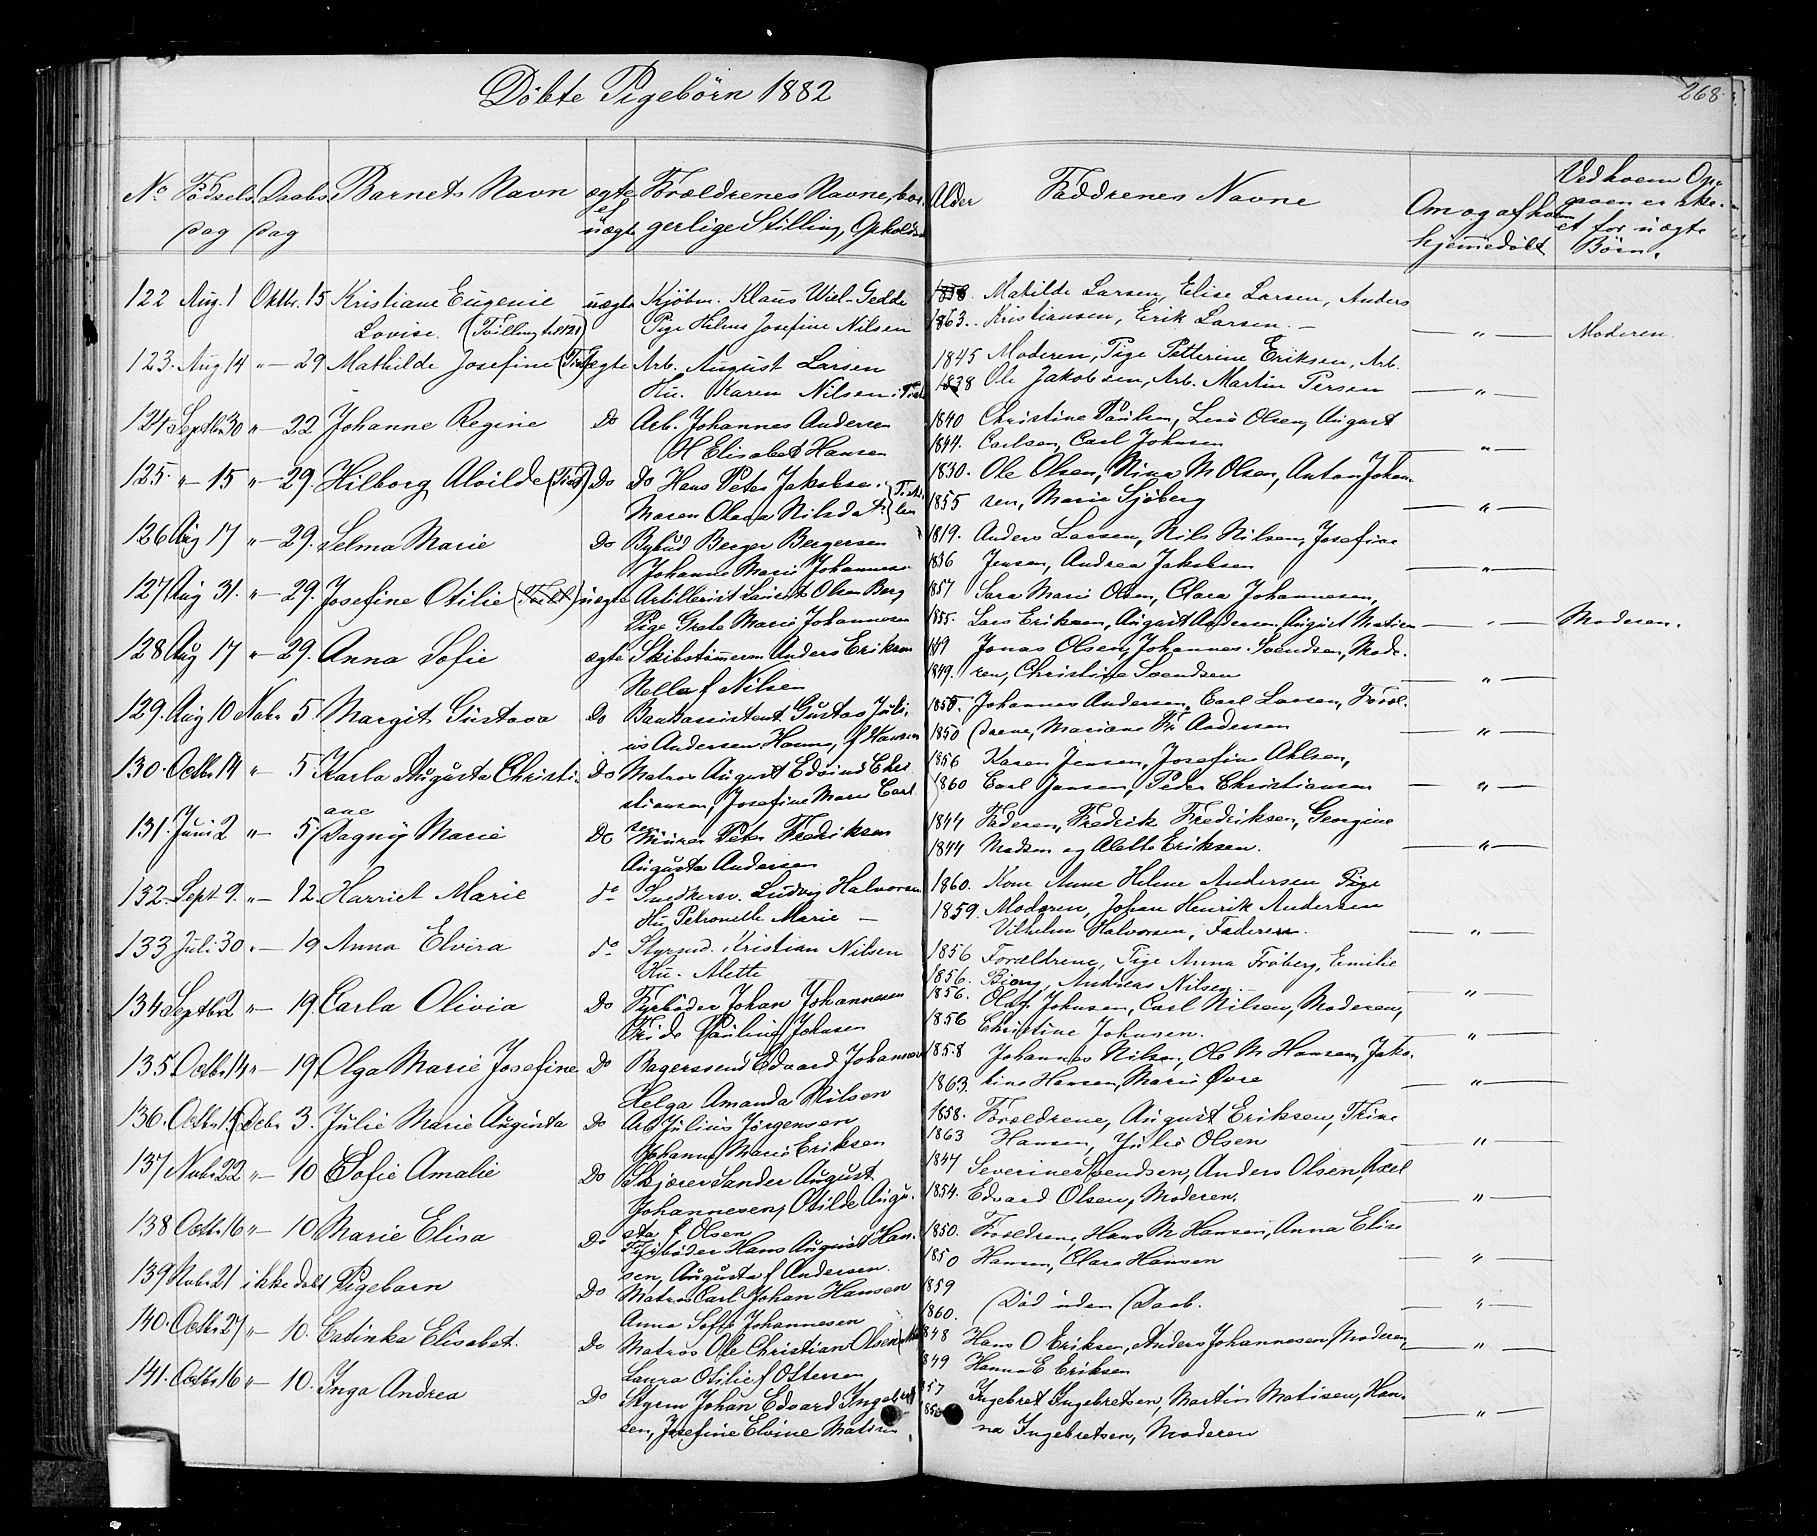 Döbte Pigebörn 1882
268.
No Födsels dag Daabs dag Barnets Navn ægte el. uægte Forældrenes Navne, borgerlige Stilling, Opholdssted Alder Faddrenes Navne Om og af hvem hjemmedöbt Ved hvem Opgaven er skeet for uægte Börn.
122 Aug. 1 Oktbr. 15 Kristiane Eugenie uægte Kjøbm. Klaus Wiel-Gedde 1838. Matilde Larsen, Elise Larsen, Anders
Lovise. (Tvilling) Pige Helene Josefine Nilsen 1863. Kristiansen, Erik Larsen. — " — Moderen.
123. Aug 14 " 29 Mathilde Josefine ægte Arb. August Larsen 1845 Moderen, Pige Petterine Eriksen, Arb.
Hu. Karen Nilsen 1838 Ole Jakobsen, Arb. Martin Persen — " —
124 Septbr 30 " 22 Johanne Regine Do Arb. Johannes Andersen 1840 Christine Paulsen, Lene Olsen, August
H Elisabet Hansen 1844. Carlsen, Carl Johnsen — " —
125. " 15 " 29. Hilborg Alvilde Do Do Hans Peter Jakobse. 1830. Ole Olsen, Nina M Olsen, Anton Johan
Maren Olava Nilsdatr. 1855 sen, Marie Sjöberg — " —
126 Aug 17 " 29. Selma Marie Do Bybud Berger Bergersen 1819. Anders Larsen, Nils Nilsen, Josefine
Johanne Marie Johannese 1836 Jensen, Andrea Jakobsen — " —
127 Aug 31. " 29. Josefine Otilie uægte Artillerist Laurents Olsen Berg 1857 Sara Marie Olsen, Clara Johannesen,
Pige Grete Marie Johannesen 1855. Lars Eriksen, August Andersen, August Matisen — " — Moderen.
128 Aug 17 " 29. Anna Sofie ægte Skibstömmerm Anders Eriksen 1849 Jonas Olsen, Johannes Svendsen, Mode-
Nella f Nilsen 1849. ren, Christine Svendsen — " —
129. Aug 10 Nobr 5. Margit Gustava Do Bankassistent Gustav Juli- 1850. Johannes Andersen, Carl Larsen, Foræl-
us Andersen Hanna f Hansen 1850 drene, Mariane Fr Andersen — " —
130. Octbr 14 " 5 Karla Augusta Christi- Do Matros August Edvind Chri 1856 Karen Jensen, Josefine Ahlsen,
ane stiansen, Josefine Marie Carl 1860 Carl Jansen, Peder Christiansen — " —
131. Juni 2 " 5 Dagny Marie Do sen Murer Peter Fredriksen 1844 Faderen, Fredrik Fredriksen, Georgine
Augusta Andersen 1844 Madsen og Alette Eriksen. — " —
132. Sept 9. " 12. Harriet Marie do Snedkersv. Ludvig Halvorsen 1860. Kone Anne Helene Andersen Pige
Hu Petronelle Marie — 1859. Moderen, Johan Henrik Andersen
Vilhelm Halvorsen, Faderen. — " —
133 Juli 30 " 19 Anna Elvira do Styrmd. Kristian Nilsen 1856 Forældrene, Pige Anna Fröberg, Emilie
Hu. Alette 1856. Bjerg, Andreas Nilsen. — " —
134 Septbr 2 " 19. Carla Olivia Do Fyrböder Johan Johannesen 1856. Olaf Johnsen, Carl Nilsen, Moderen,
Frida Pauline Johnsen 1856 Christine Johnsen. — " —
135 Octbr 14 " 19. Olga Marie Josefine Do Bagerssvend Edvard Johansen 1858 Johannes Nilsen, Ole M Hansen, Jako-
Helga Amanda Nilsen 1863. bine Hansen, Marie Øvre — " —
136. Octbr 15 Decbr 3. Julie Marie Augusta Do Arb Julius Jörgensen 1858. Forældrene, August Eriksen, Trine
Johanne Marie Eriksen 1863 Hansen, Julie Olsen — " —
137 Nobr 22 " 10 Sofie Amalie Do Skjærer Sander August 1847 Severine Svendsen, Anders Olsen, Axel
Johannesen, Otilde Augu- 1854. Edvard Olsen, Moderen. — " —
138 Octbr 16 " 10 Marie Elisa Do sta f Olsen Fyrböder Hans August Han- 1850. Forældrene, Hans M Hansen, Anna Elise
sen, Augusta f Andersen. 1850 Hansen, Clara Hansen — " —
139 Nobr 21 ikke döbt Pigebarn Do Matros Carl Johan Hansen 1859
Anna Sofie Johannesen 1860. Död uden Daab. — " —
140. Octbr 27 " 10. Catinka Elisabet. Do Matros Ole Christian Olsen 1848 Hans O Eriksen, Anders Johannesen, Moderen,
Laura Otilie f Ottersen 1849 Hanna E Eriksen — " —
141. Octbr 16 " 10. Inga Andrea Do Styrm Johan Edvard Ingebret 57 Ingebret Ingebretsen, Martin Matisen, Han-
sen, Josefine Elvine Matisen 185 na Ingebretsen, Moderen — " —